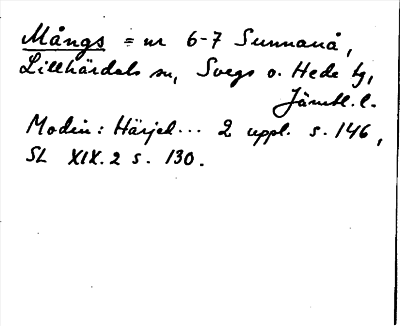 Mångs = nr 6-7 Sunnanå,
Lillhärdals sn, Svegs o. Hede tg,
Jämtl. l.
Modin: Härjed... 2 uppl. s. 146,
SL XIX.2 s. 130.